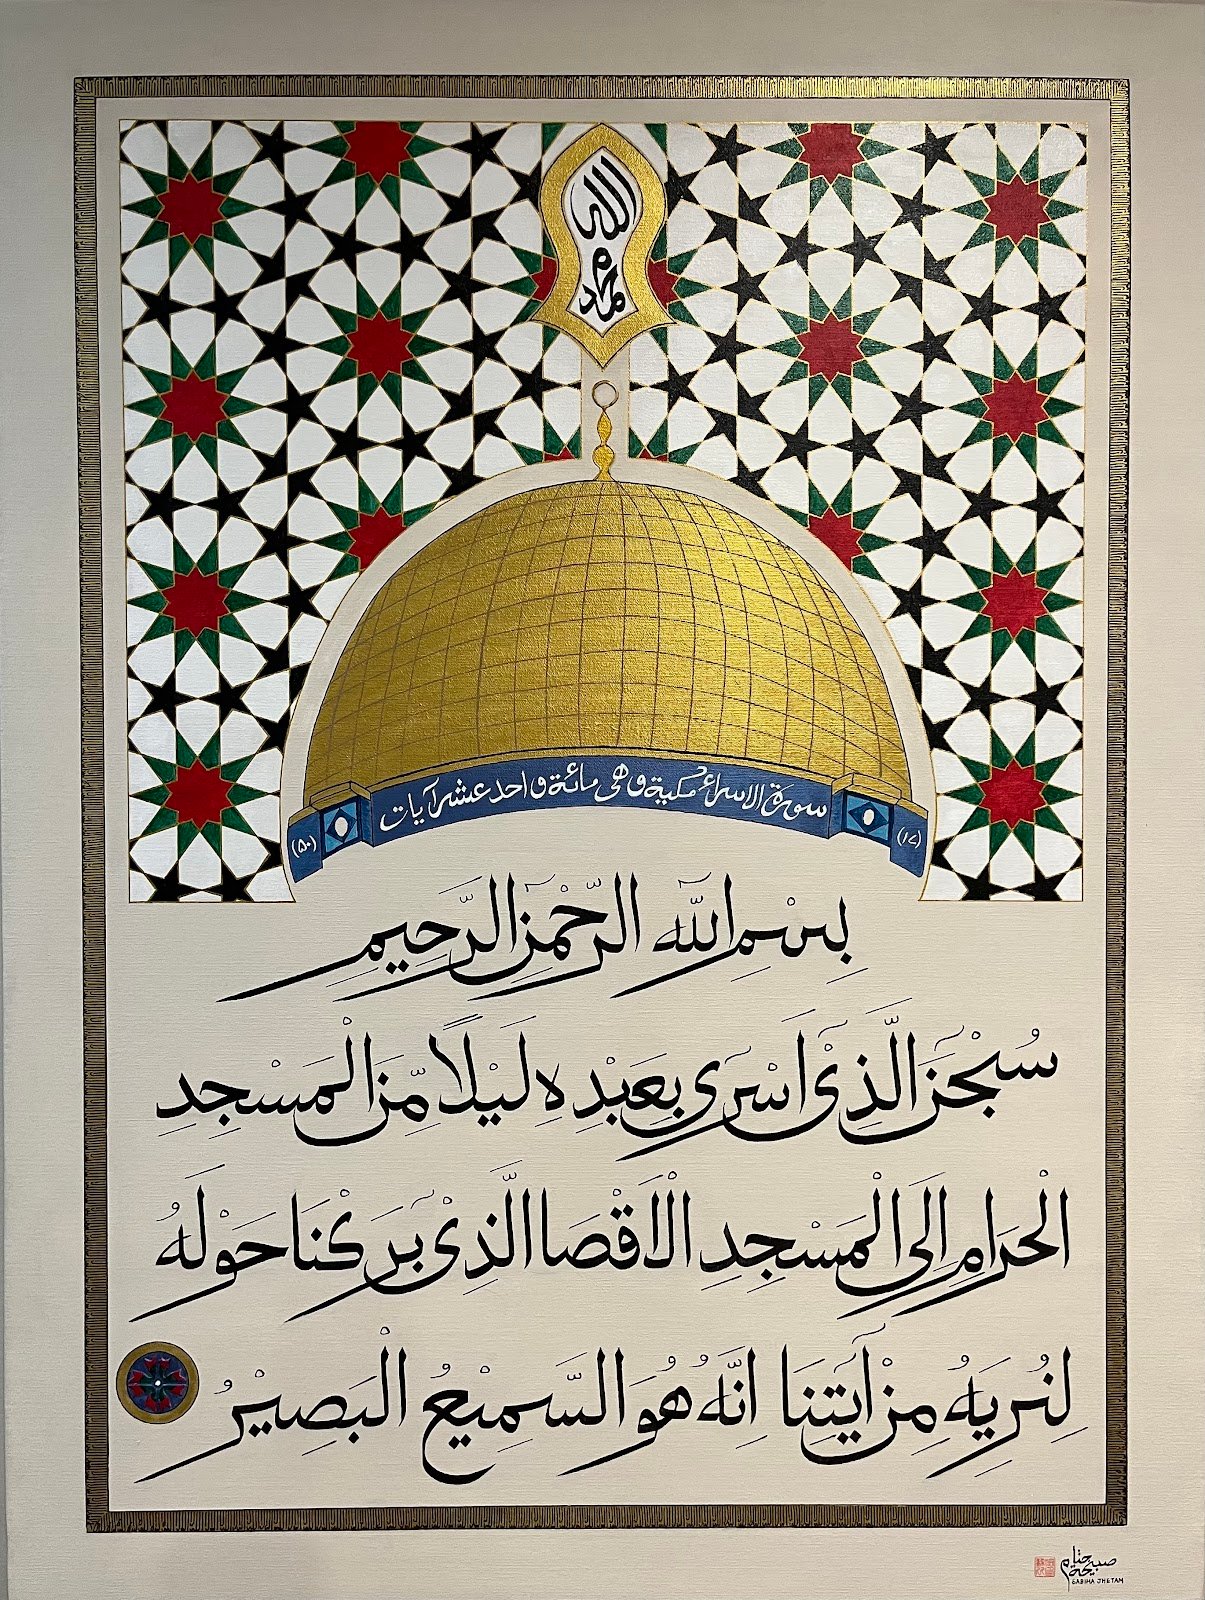 الله
محمد
سورة الاسراء مكية وهى مائة و احد عشر آيات
(١٧)
(٥٠)
بِسْمِ اللّٰهِ الرَّحْمٰنِ الرَّحِيمِ
سُبْحٰنَ الَّذِىْٓ اَسْرٰى بِعَبْدِهٖ لَيْلًا مِّنَ الْمَسْجِدِ
الْحَرَامِ اِلَى الْمَسْجِدِ الْاَقْصَا الَّذِىْ بٰرَكْنَا حَوْلَهٗ
لِنُرِيَهٗ مِنْ اٰيٰتِنَا اِنَّهٗ هُوَ السَّمِيْعُ الْبَصِيْرُ
صبيحة ختام
SABIHA JHETAM